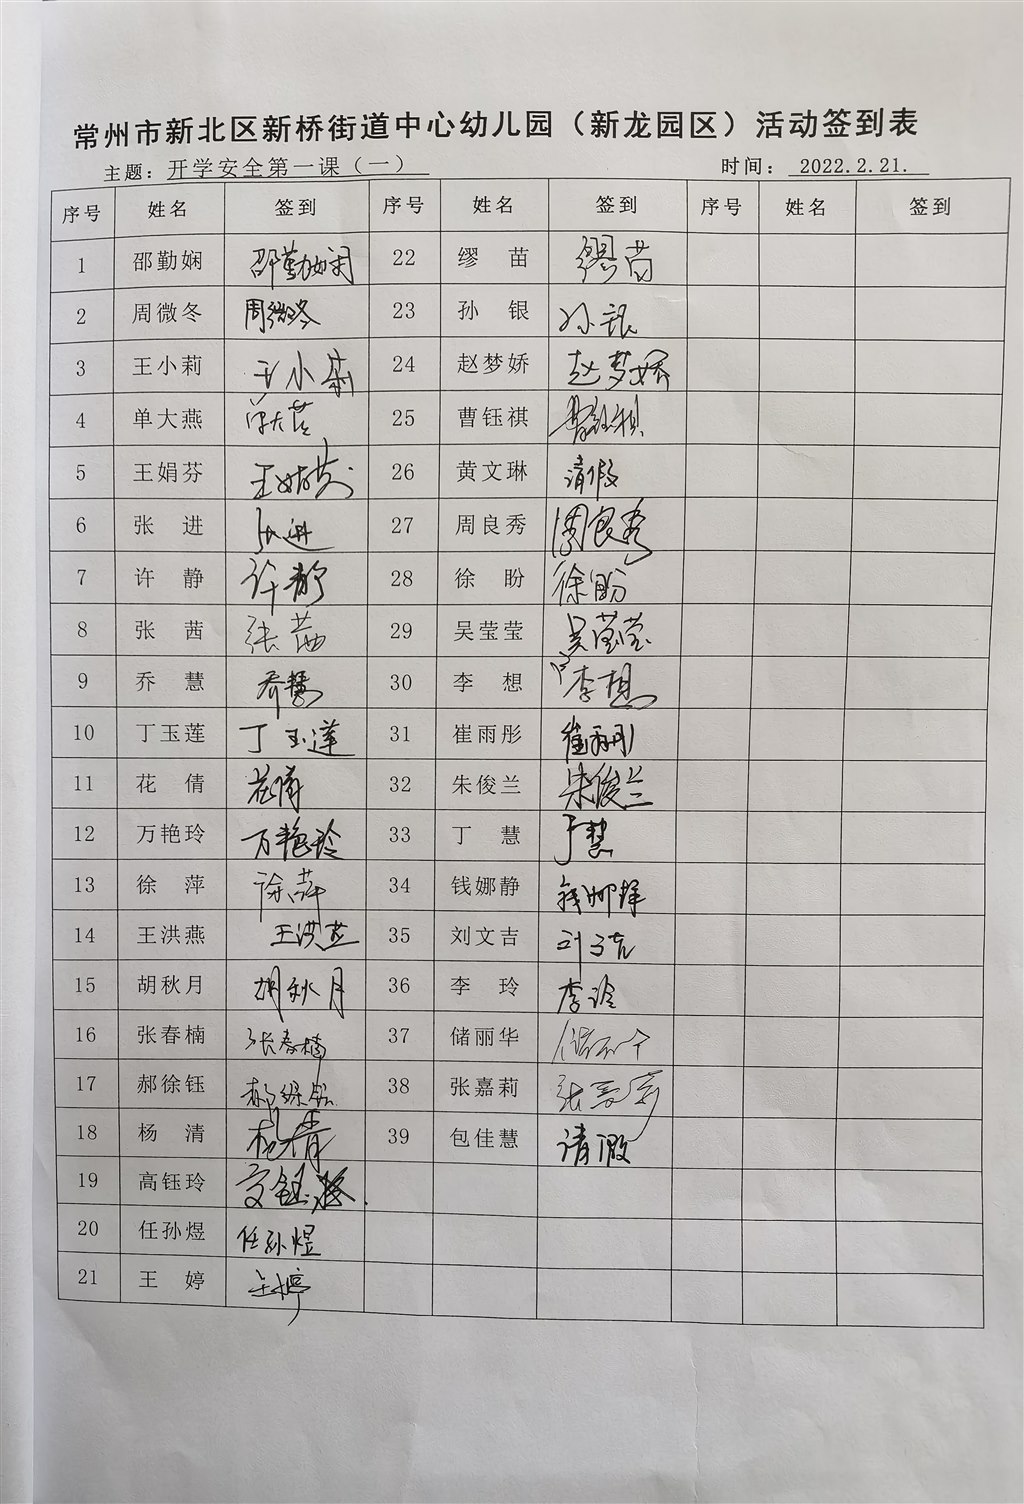 常州市新北区新桥街道中心幼儿园（新龙园区）活动签到表
主题：开学安全第一课（一） 时间：2022.2.21.
序号 姓名 签到 序号 姓名 签到 序号 姓名 签到
1 邵勤娴 邵勤娴 22 缪苗 缪苗
2 周微冬 周微冬 23 孙银 孙银
3 王小莉 王小莉 24 赵梦娇 赵梦娇
4 单大燕 单大燕 25 曹钰祺 曹钰祺
5 王娟芬 王娟芬 26 黄文琳 请假
6 张进 张进 27 周良秀 周良秀
7 许静 许静 28 徐盼 徐盼
8 张茜 张茜 29 吴莹莹 吴莹莹
9 乔慧 乔慧 30 李想 李想
10 丁玉莲 丁玉莲 31 崔雨彤 崔雨彤
11 花倩 花倩 32 朱俊兰 朱俊兰
12 万艳玲 万艳玲 33 丁慧 丁慧
13 徐萍 徐萍 34 钱娜静 钱娜静
14 王洪燕 王洪燕 35 刘文吉 刘文吉
15 胡秋月 胡秋月 36 李玲 李玲
16 张春楠 张春楠 37 储丽华 储丽华
17 郝徐钰 郝徐钰 38 张嘉莉 张嘉莉
18 杨清 杨清 39 包佳慧 请假
19 高钰玲 高钰玲
20 任孙煜 任孙煜
21 王婷 王婷